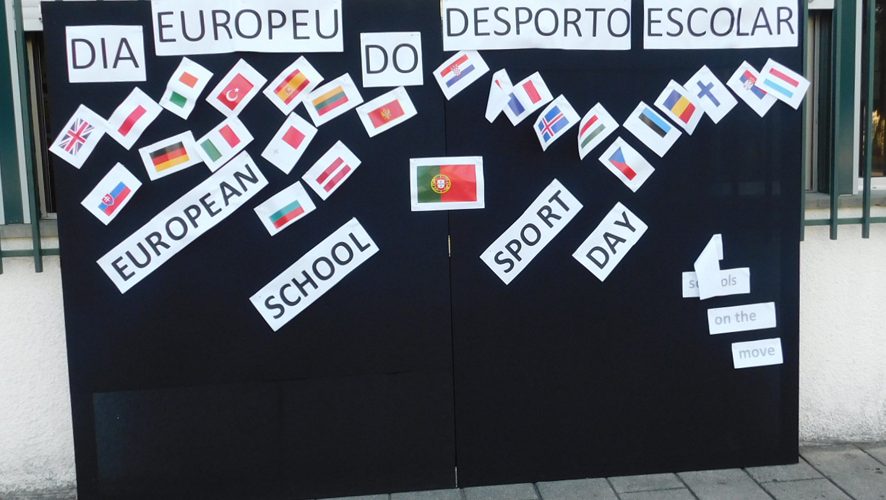 DIA EUROPEU DO DESPORTO ESCOLAR
EUROPEAN SCHOOL SPORT DAY
on the
move